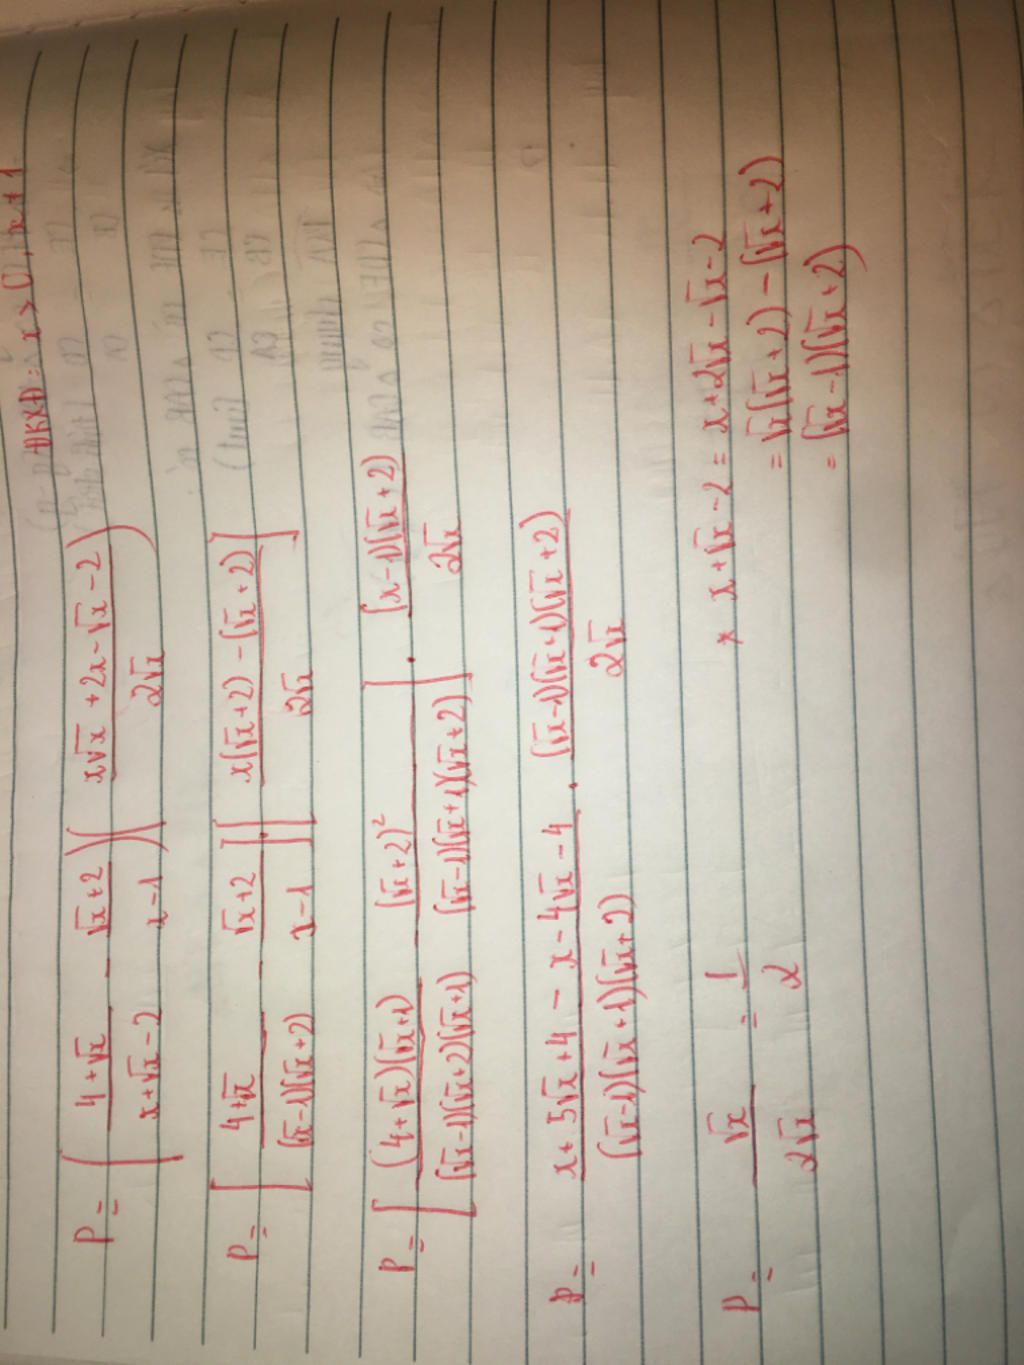 ĐKXĐ: x > 0, x ≠ 1
P = ( (4+√x)/(x+√x-2) - (√x+2)/(x-1) )( (x√x+2x-√x-2)/(2√x) )
P = [ (4+√x)/((√x-1)(√x+2)) - (√x+2)/(x-1) ].[ (x(√x+2)-(√x+2))/(2√x) ]
P = [ ((4+√x)(√x+1))/((√x-1)(√x+2)(√x+1)) - (√x+2)²/((√x-1)(√x+1)(√x+2)) ] . ((x-1)(√x+2))/(2√x)
P = (x+5√x+4-x-4√x-4)/((√x-1)(√x+1)(√x+2)) . ((√x-1)(√x+1)(√x+2))/(2√x)
P = √x/(2√x) = 1/2
* x+√x-2 = x+2√x-√x-2
= √x(√x+2)-(√x+2)
= (√x-1)(√x+2)